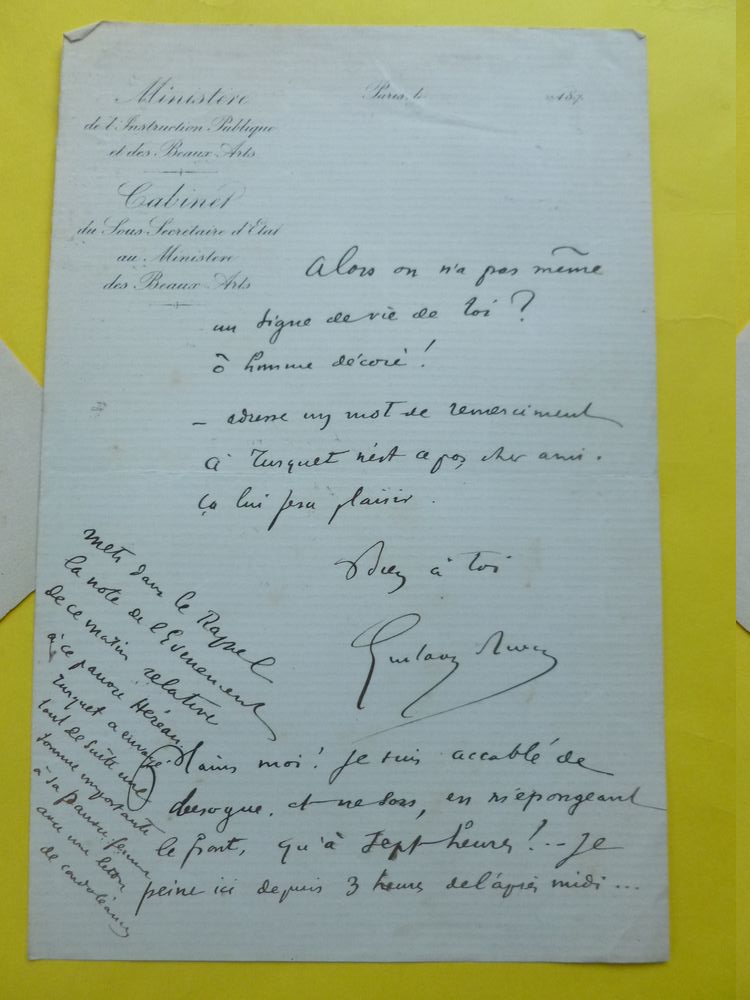 Ministère
de l'Instruction Publique
et des Beaux-Arts
Cabinet
du Sous-Secrétaire d'Etat
au Ministère
des Beaux-Arts
Paris, le 187
Alors on n'a pas même
un signe de vie de toi ?
ô homme décoré !
– adresse un mot de remerciment
à Turquet n'est ce pas, cher ami.
ça lui fera plaisir.
Bien à toi
Gustave
Plains moi ! Je suis accablé de
besogne, et ne sors, en m'épongeant
le front, qu'à sept heures ! -- Je
peine ici depuis 3 heures de l'après midi ...
mets dans le Rappel
la note de l'Evenement
de ce matin relative
à ce pauvre Héreau
Turquet a envoyé
tout de suite une
somme importante
à sa pauvre femme
avec une lettre
de condoléances